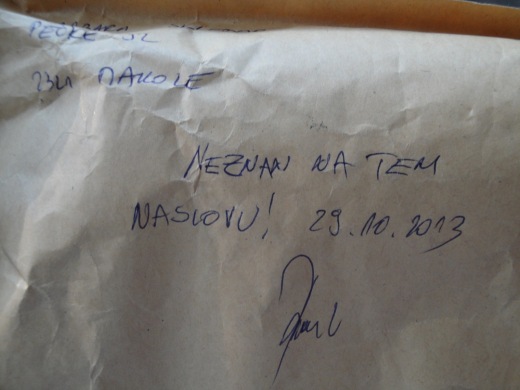 2321 MAKOLE
NEZNAN NA TEM
NASLOVU! 29.10.2013